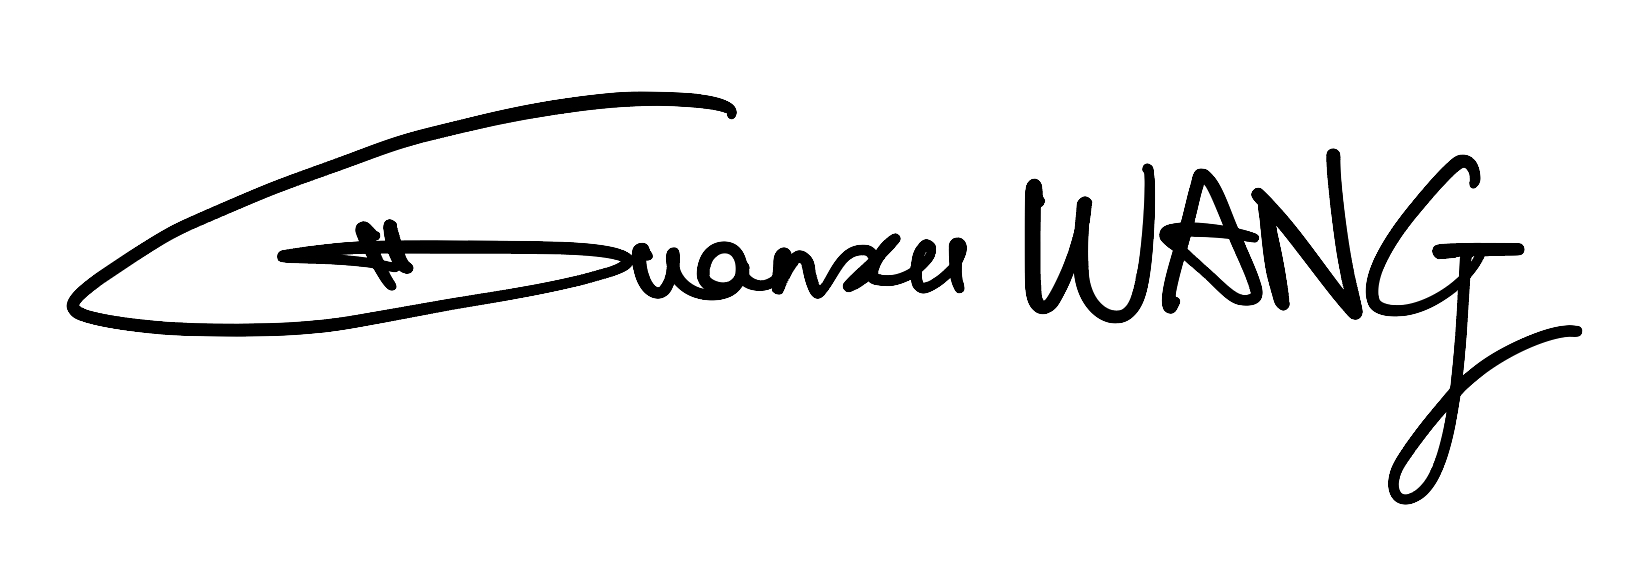 Guanxu WANG